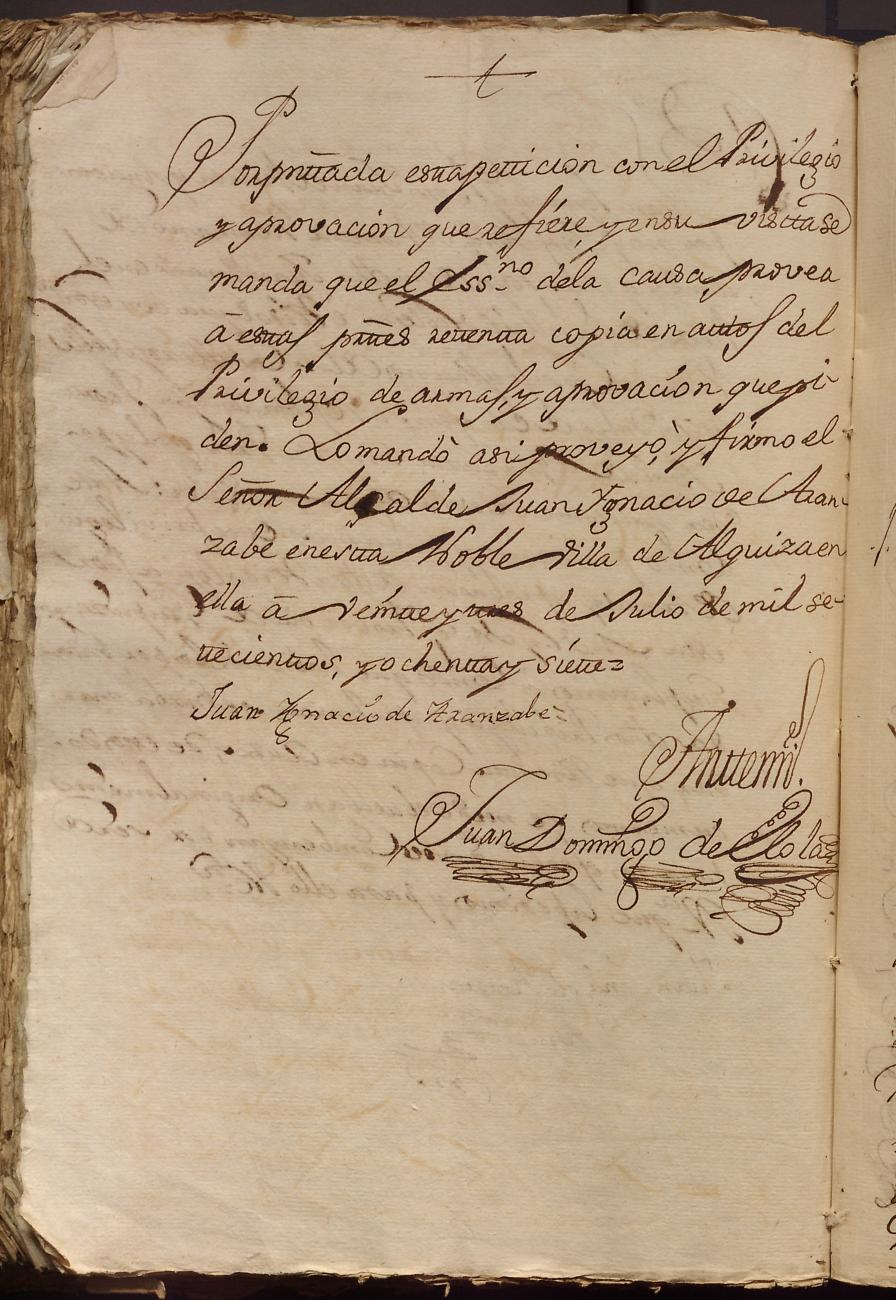 +
Por pnttada estta pettición con el Privilegio
y aprovación que refiére, y en su visctta se
manda que el Ess.no dela causa, provea
â esttas pttes rettentta copía en auttos del
Privilegio de armas, y aprovación que pi-
den. Lo mandò asi proveyò, y firmo el
Señor Alcalde Juan Ygnacio de Aran-
zabe en estta Noble Villa de Alquiza en
ella â veintte y ttres de Julio de mil se-
ttecienttos, y ochentta y siette=
Juan Ygnacio de Aranzabe=
Antte mi.
Juan Domingo de